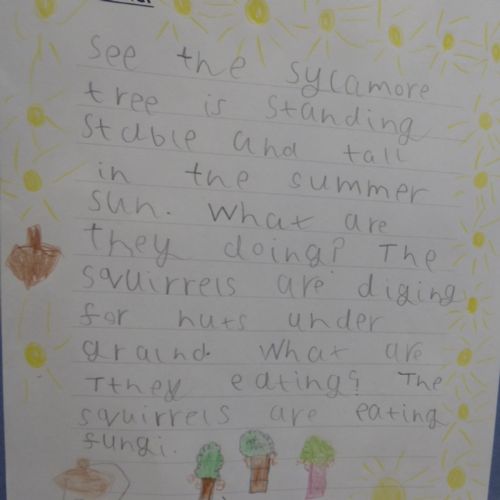 see the sycamore
tree is standing
stable and tall
in the summer
sun. What are
they doing? The
squirrels are diging
for nuts under
graind. What are
Tthey eating? The
squirrels are eating
fungi.